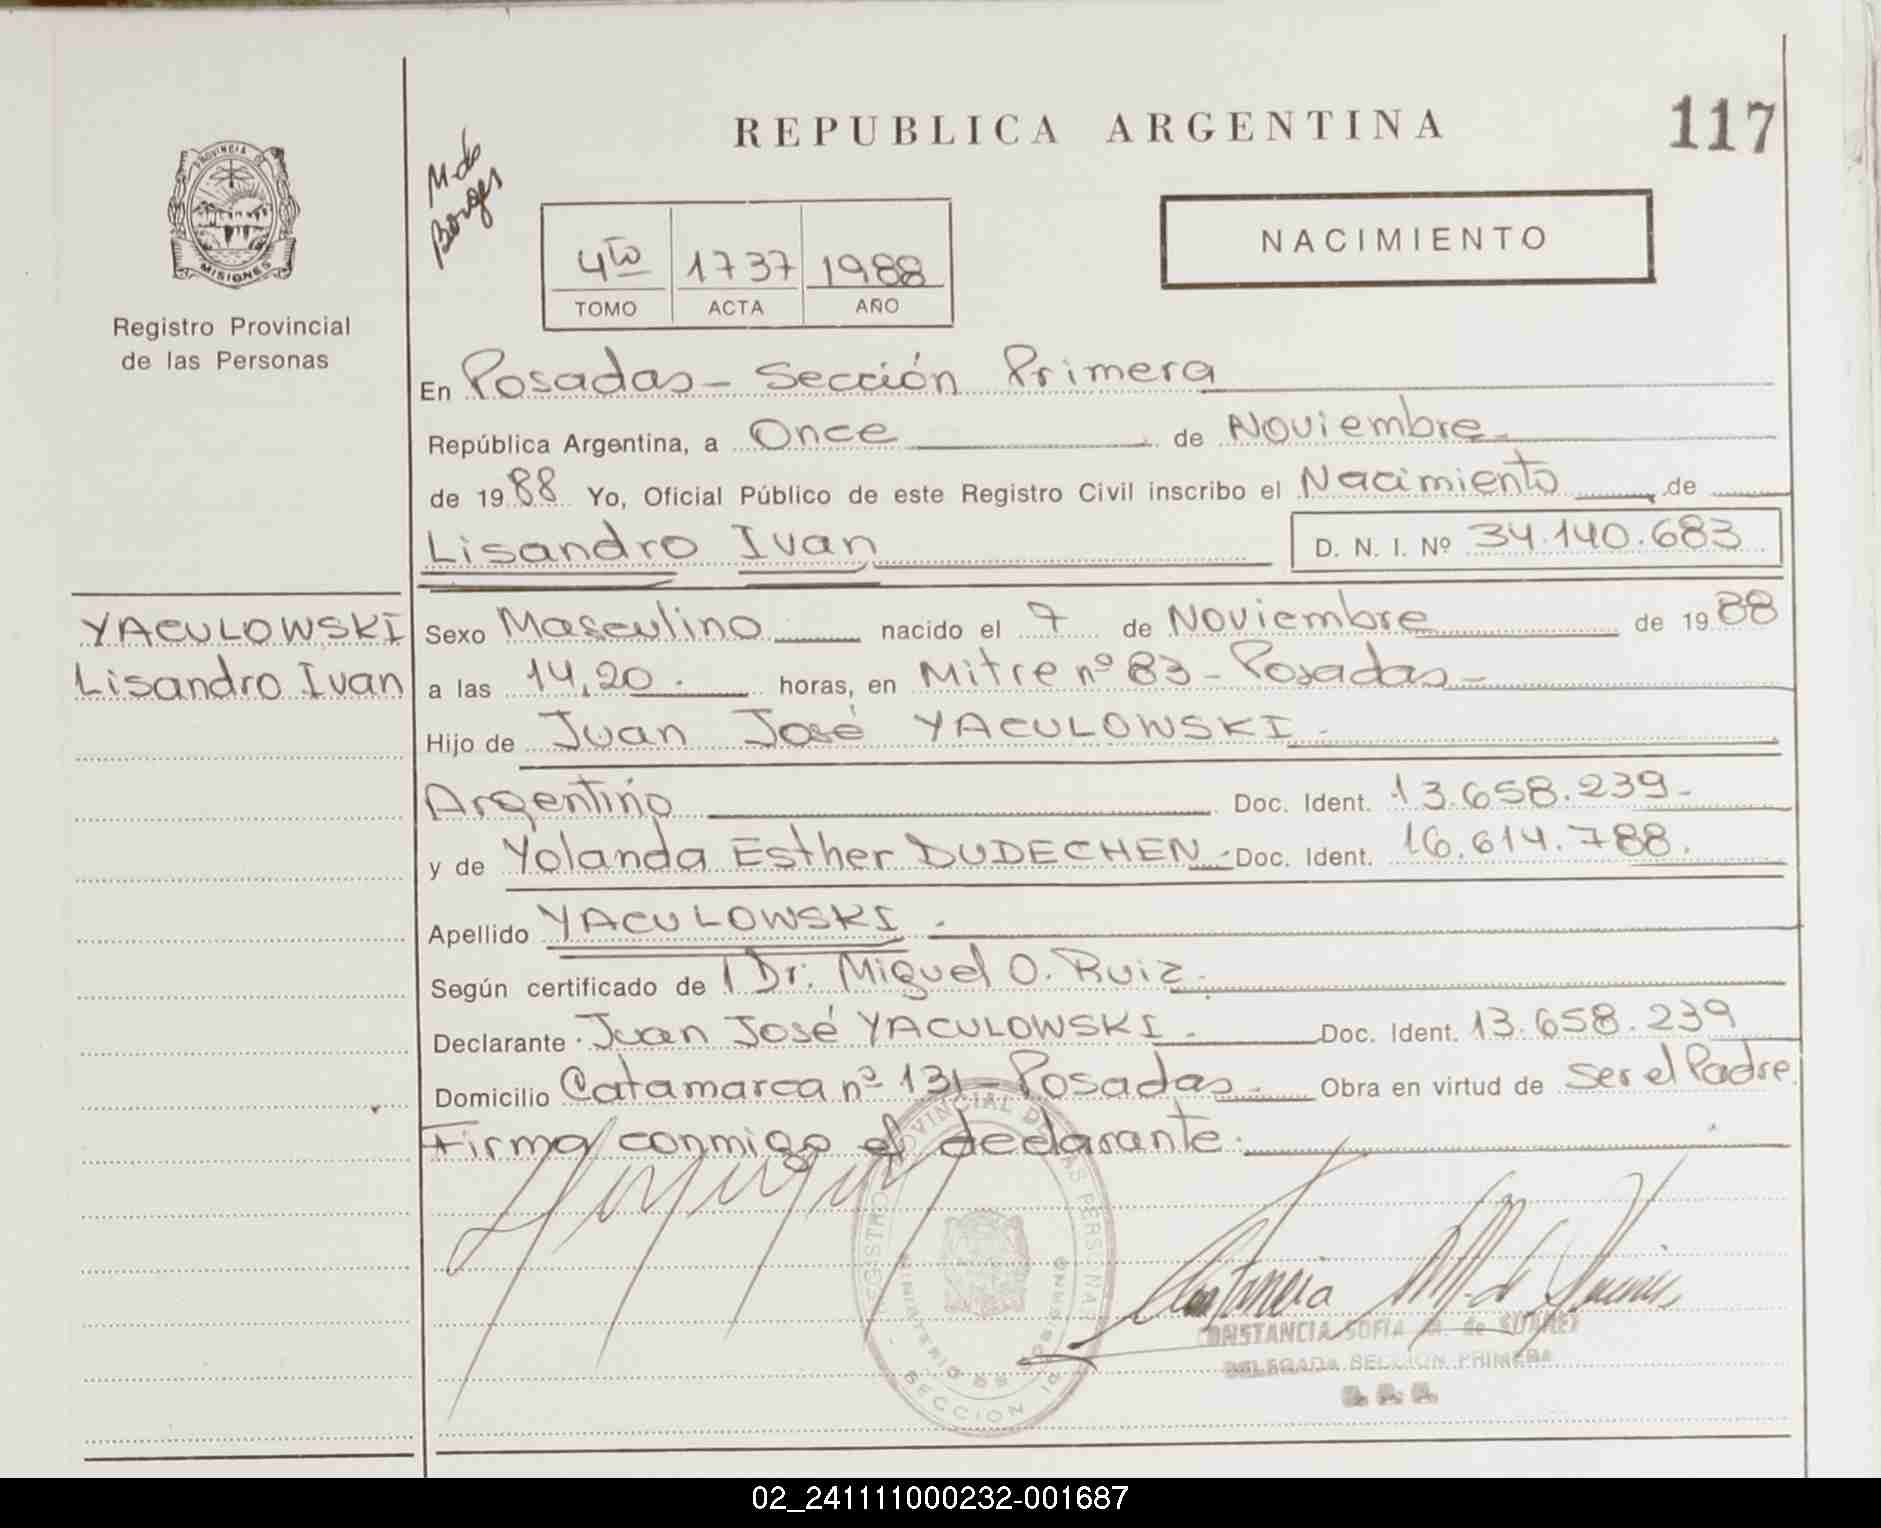 REPUBLICA ARGENTINA
117
PROVINCIA DE
MISIONES
Registro Provincial
de las Personas
M. de
Borges
NACIMIENTO
4to 1737 1988
TOMO ACTA AÑO
En Posadas - Sección Primera
República Argentina, a Once de Noviembre
de 1988 Yo, Oficial Público de este Registro Civil inscribo el Nacimiento de
Lisandro Ivan D. N. I. Nº 34.140.683
YACULOWSKI
Lisandro Ivan
Sexo Masculino nacido el 7 de Noviembre de 1988
a las 14,20. horas, en Mitre nº 83 - Posadas -
Hijo de Juan José YACULOWSKI -
Argentino Doc. Ident. 13.658.239-
y de Yolanda Esther DUDECHEN - Doc. Ident. 16.614.788.
Apellido YACULOWSKI -
Según certificado de Dr. Miguel O. Ruiz.
Declarante Juan José YACULOWSKI - Doc. Ident. 13.658.239
Domicilio Catamarca nº 131 - Posadas - Obra en virtud de ser el Padre.
Firma conmigo el declarante.
REGISTRO PROVINCIAL DE LAS PERSONAS
MINISTERIO DE GOBIERNO
SECCION 1a
CONSTANCIA SOFIA M. de SUAREZ
DELEGADA SECCION PRIMERA
02_241111000232-001687